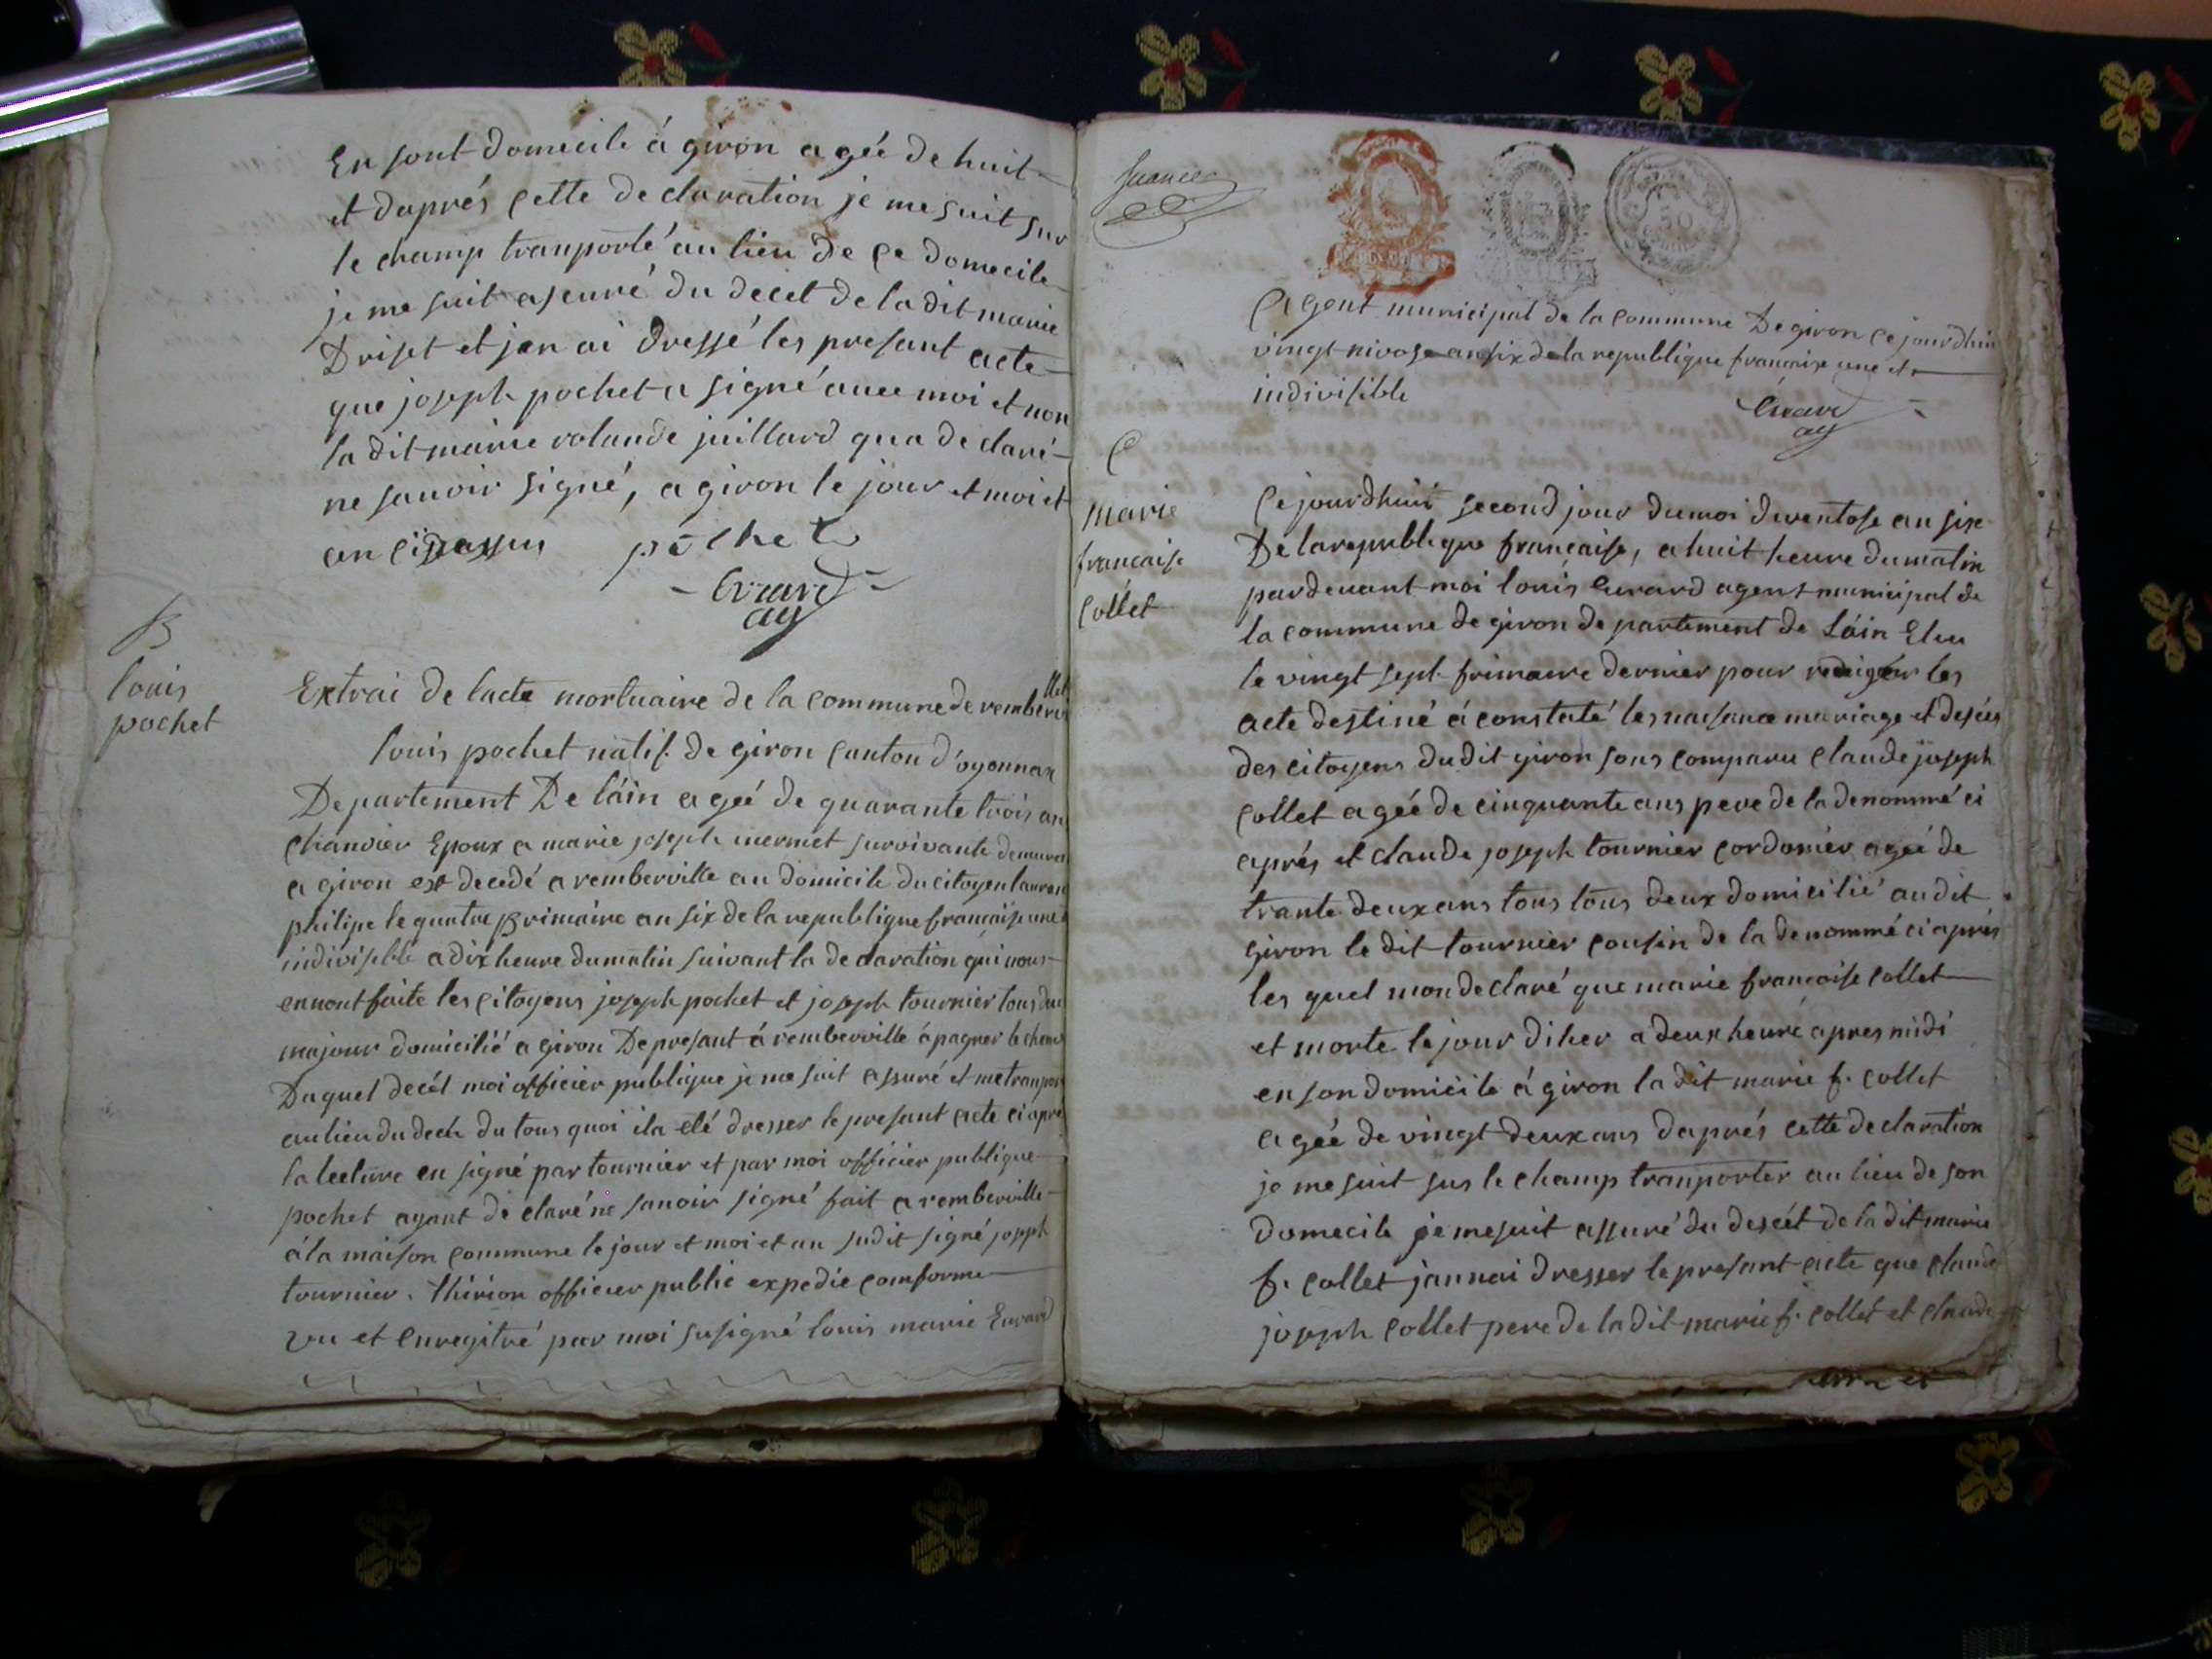 En sont domecile á giron agée de huit
et daprés cette declaration je me suit sur
le champ tranporté au lieu de ce domecile
je me suit aseuré du decet de la dit marie
Driset et jan ai dressé les presant acte
que joseph pochet a signé avec moi et non
la dit marie rolande juillard qua declaré
ne savoir signé, a giron le jour et moi et
an ci dessus pochet
Evrard
ag
B
louis
pochet
Extrai de lacte mortuaire de la commune de remberville
louis pochet natif de giron canton d'oyonnax
Departement De láin agée de quarante trois an
chanvier Epoux a marie joseph mermet survivante demurant
a giron est decedé a remberville au domicile du citoyen lauren
philipe le quatre Brimaire an six de la republique francaise une
indivisible a dix heure du matin suivant la declaration qui nous
en nont faite les citoyens joseph pochet et joseph tournier tous deu
majour domicilié a giron De presant á remberville
Daquel decét moi officier publique je me suit assuré et me tranpor
au lieu du dech du tous quoi il a eté dresser le presant acte ci apre
la lecture en signé par tournier et par moi officier publique
pochet ayant declaré ne savoir signé fait a remberville
á la maison commune le jour et moi et an sudit signé joseph
tournier. thirion officier public expedie comforme
vu et enregitré par moi susigné louis marie Evrard
agent municipal de la commune De giron ce jourdhui
vingt nivose an six de la republique francaise une et
indivisible
Evrard
ag
C
marie
francaise
Collet
Ce jourdhui second jour du moi de ventose an six
De la republique francaise, a huit heure du matin
pardevant moi louis Evrard agent municipal de
la commune de giron departement de Láin Eleu
le vingt sept frimaire dernier pour redigér les
acte destiné á constaté les naisance mariage et decées
des citoyens du dit giron sons comparu claude joseph
collet agée de cinquante ans pere de la denommé ci
aprés et claude joseph tournier cordonier agée de
trante deux ans tous tous deux domicilié au dit
giron le dit tournier cousin de la denommé ci aprés
les quel mon declaré que marie francoise collet
et morte le jour d'iher a deux heure apres midi
en son domicile á giron la dit marie f. collet
agée de vingt deux ans daprés cette declaration
je me suit sus le champ tranporter au lieu de son
domecile je me suit assuré du decét de la dit marie
f. collet jannai dresser le presant acte que claude
joseph collet pere de la dit marie f. collet et claude